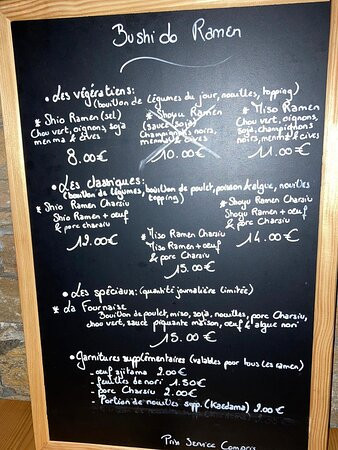 Bushido Ramen
• Les végératiens:
(bouillon de légumes du jour, nouilles, topping)
* Shio Ramen (sel)
Chou vert, oignons, soja
menma & cives
8.00€
* Shoyu Ramen
(sauce soja)
Champignons noirs,
menma & cives
10.00€
* Miso Ramen
Chou vert, oignons,
soja, champignons
noirs, menma & cives
11.00€
• Les classiques: (bouillon de poulet, poisson & algue, nouilles
(bouillon de légumes, topping)
* Shio Ramen Charsiu
Shio Ramen + oeuf
& porc charsiu
12.00€
* Miso Ramen Charsiu
Miso Ramen + oeuf
& porc Charsiu
15.00€
* Shoyu Ramen Charsiu
Shoyu Ramen + oeuf
& porc Charsiu
14.00€
• Les spéciaux: (quantité journalière limitée)
* La Fournaise
Bouillon de poulet, miso, soja, nouilles, porc Charsiu,
chou vert, sauce piquante maison, oeuf & algue nori
15.00€
• Garnitures supplémentaires (valables pour tous les ramen)
- oeuf ajitama 2.00€
- feuilles de nori 1.50€
- porc Charsiu 2.00€
- Portion de nouilles supp. (Kaedama) 2.00€
Prix Service Compris